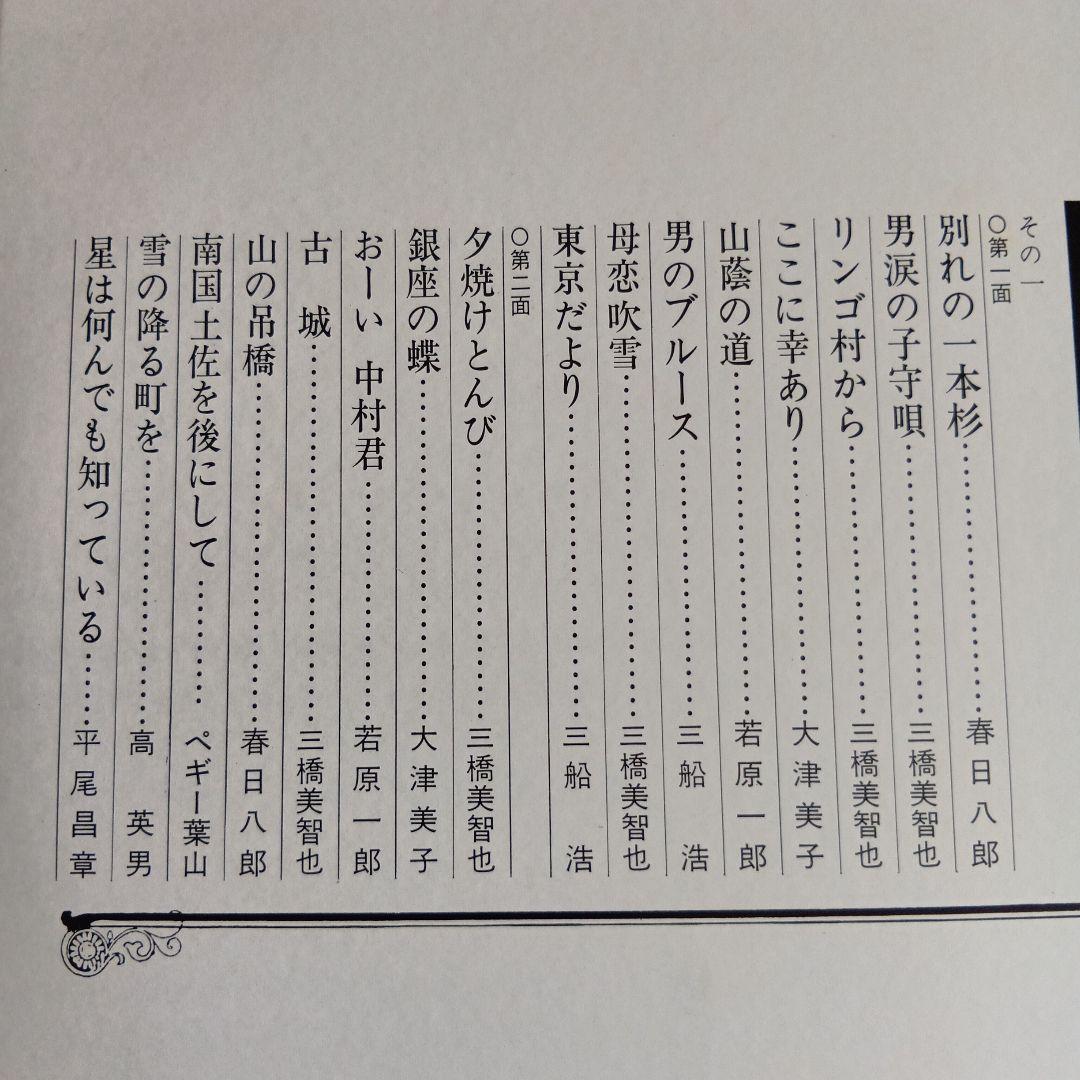 その一
○第一面
別れの一本杉……………………春日八郎
男涙の子守唄……………………三橋美智也
リンゴ村から……………………三橋美智也
ここに幸あり……………………大津美子
山蔭の道……………………若原一郎
男のブルース……………………三船 浩
母恋吹雪……………………三橋美智也
東京だより……………………三船 浩
○第二面
夕焼けとんび……………………三橋美智也
銀座の蝶……………………大津美子
おーい 中村君……………………若原一郎
古 城……………………三橋美智也
山の吊橋……………………春日八郎
南国土佐を後にして…………ペギー葉山
雪の降る町を……………………高 英男
星は何んでも知っている……平尾昌章